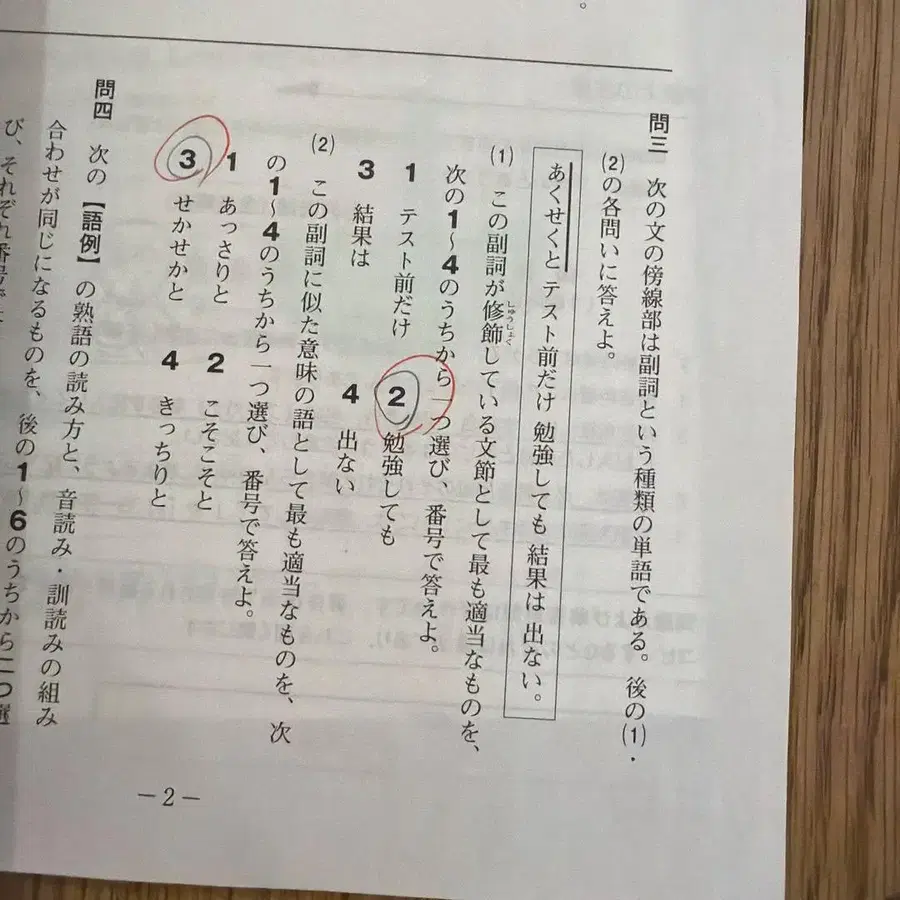 問三 次の文の傍線部は副詞という種類の単語である。後の(1)・
(2)の各問いに答えよ。
あくせくと テスト前だけ 勉強しても 結果は 出ない。
(1) この副詞が修飾している文節として最も適当なものを、
しゅうしょく
次の1~4のうちから一つ選び、番号で答えよ。
1 テスト前だけ 2 勉強しても
3 結果は 4 出ない
(2) この副詞に似た意味の語として最も適当なものを、次
の1~4のうちから一つ選び、番号で答えよ。
1 あっさりと 2 こそこそと
3 せかせかと 4 きっちりと
問四 次の【語例】の熟語の読み方と、音読み・訓読みの組み
合わせが同じになるものを、後の1~6のうちから二つ選
び、それぞれ番号で
-2-